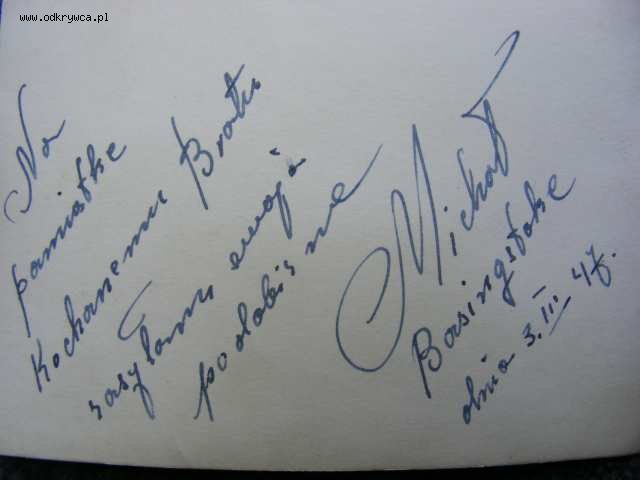 www.odkrywca.pl
Na
pamiatke
Kochanemu Bratu
zasyłam swoją
podobiznę
Michał
Basingstoke
dnia 3.III 47.